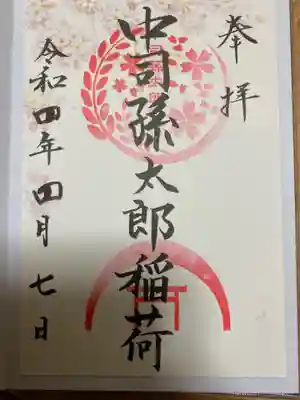 奉拝
中司孫太郎稲荷
令和四年四月七日